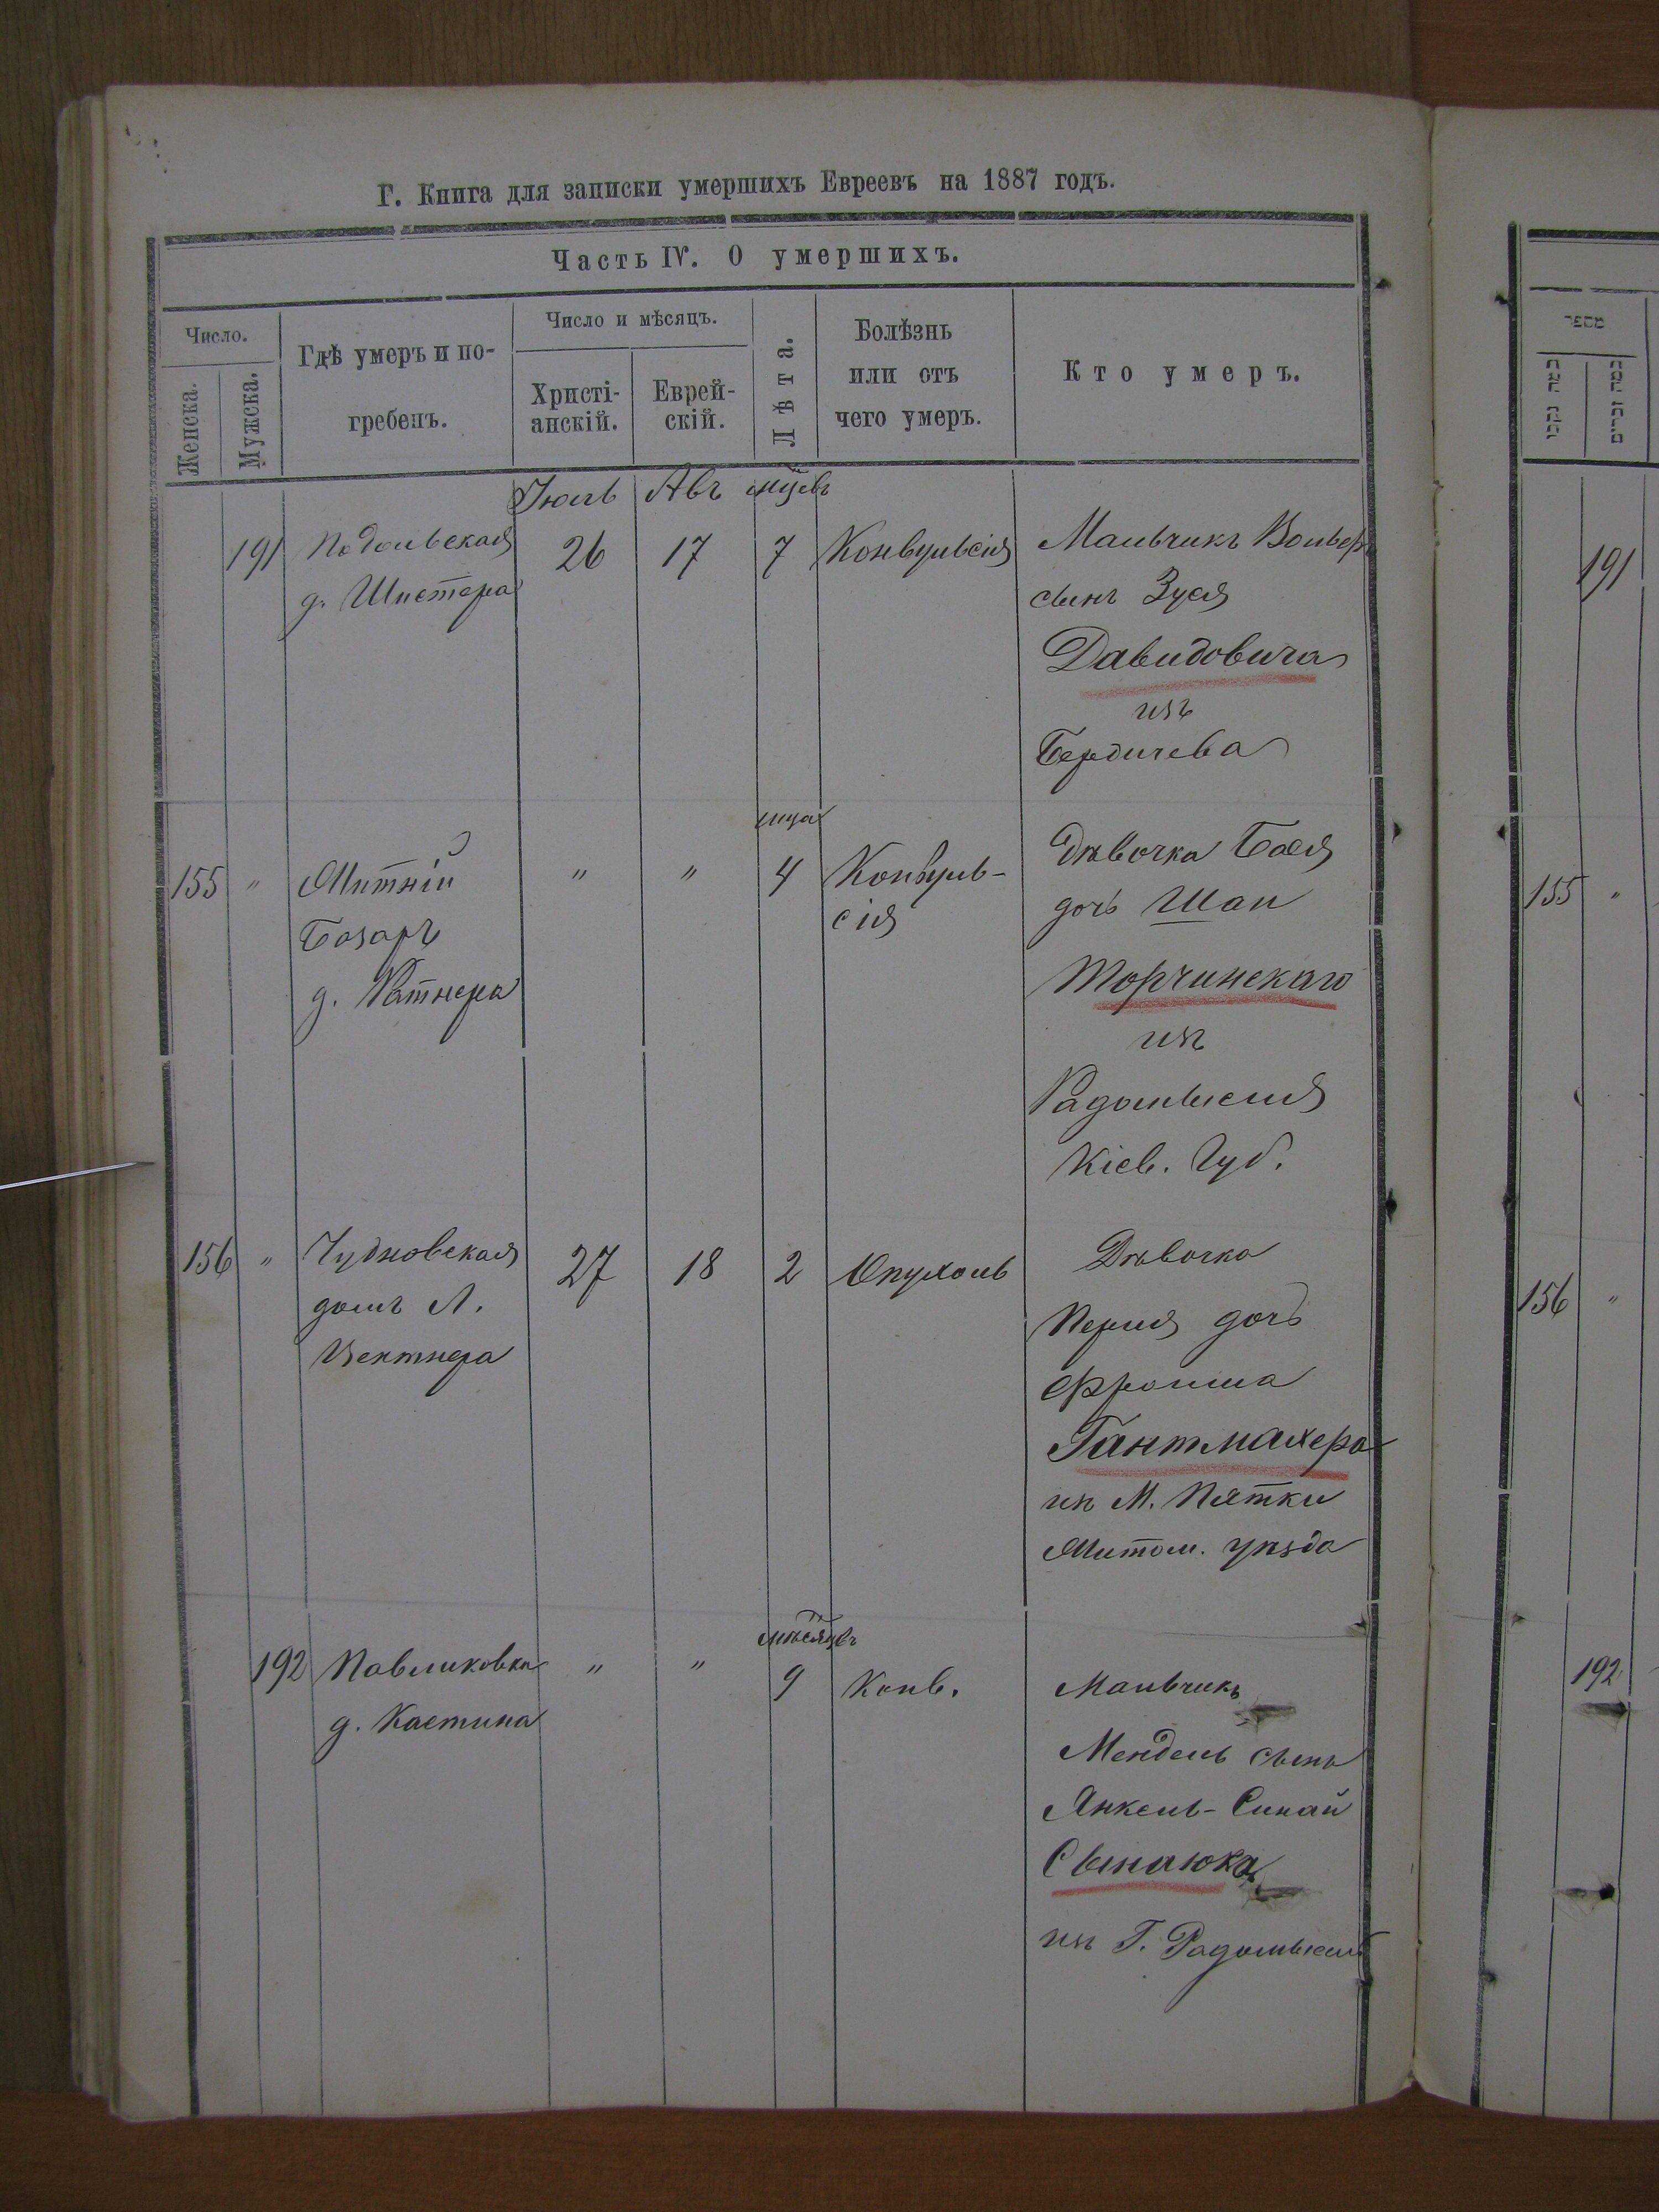 Г. Книга для записки умершихъ Евреевъ на 1887 годъ.
Часть IV. О умершихъ.
Число.
Женска.
Мужска.
Гдѣ умеръ и по-
гребенъ.
Число и мѣсяцъ.
Христі-
анскій.
Еврей-
скій.
Лѣта.
Болѣзнь
или отъ
чего умеръ.
Кто умеръ.
Іюль Авъ мцвъ
191 Подольская 26 17 7 Конвульсія Мальчикъ Вольфъ
д. Шистера сынъ Зуся
Давидовича
изъ
Бердичева
мца
155 " Житній " " 4 Конвуль- Дѣвочка Бася
Базаръ сія дочь Шаи
д. Ратнера Торчинскаго
изъ
Радомысля
Кіев. Губ.
156 " Чудновская 27 18 2 Опухоль Дѣвочка
домъ Л. Перля дочь
Фроима
Гантмахера
изъ М. Пятки
Житом. уѣзда
мѣсяцевъ
192 Павликовка " " 9 Конв. Мальчикъ
д. Костина Мендель сынъ
Янкель-Синай
Сынаюка
изъ Г. Радомысль
מספר
191
155 "
156 "
192